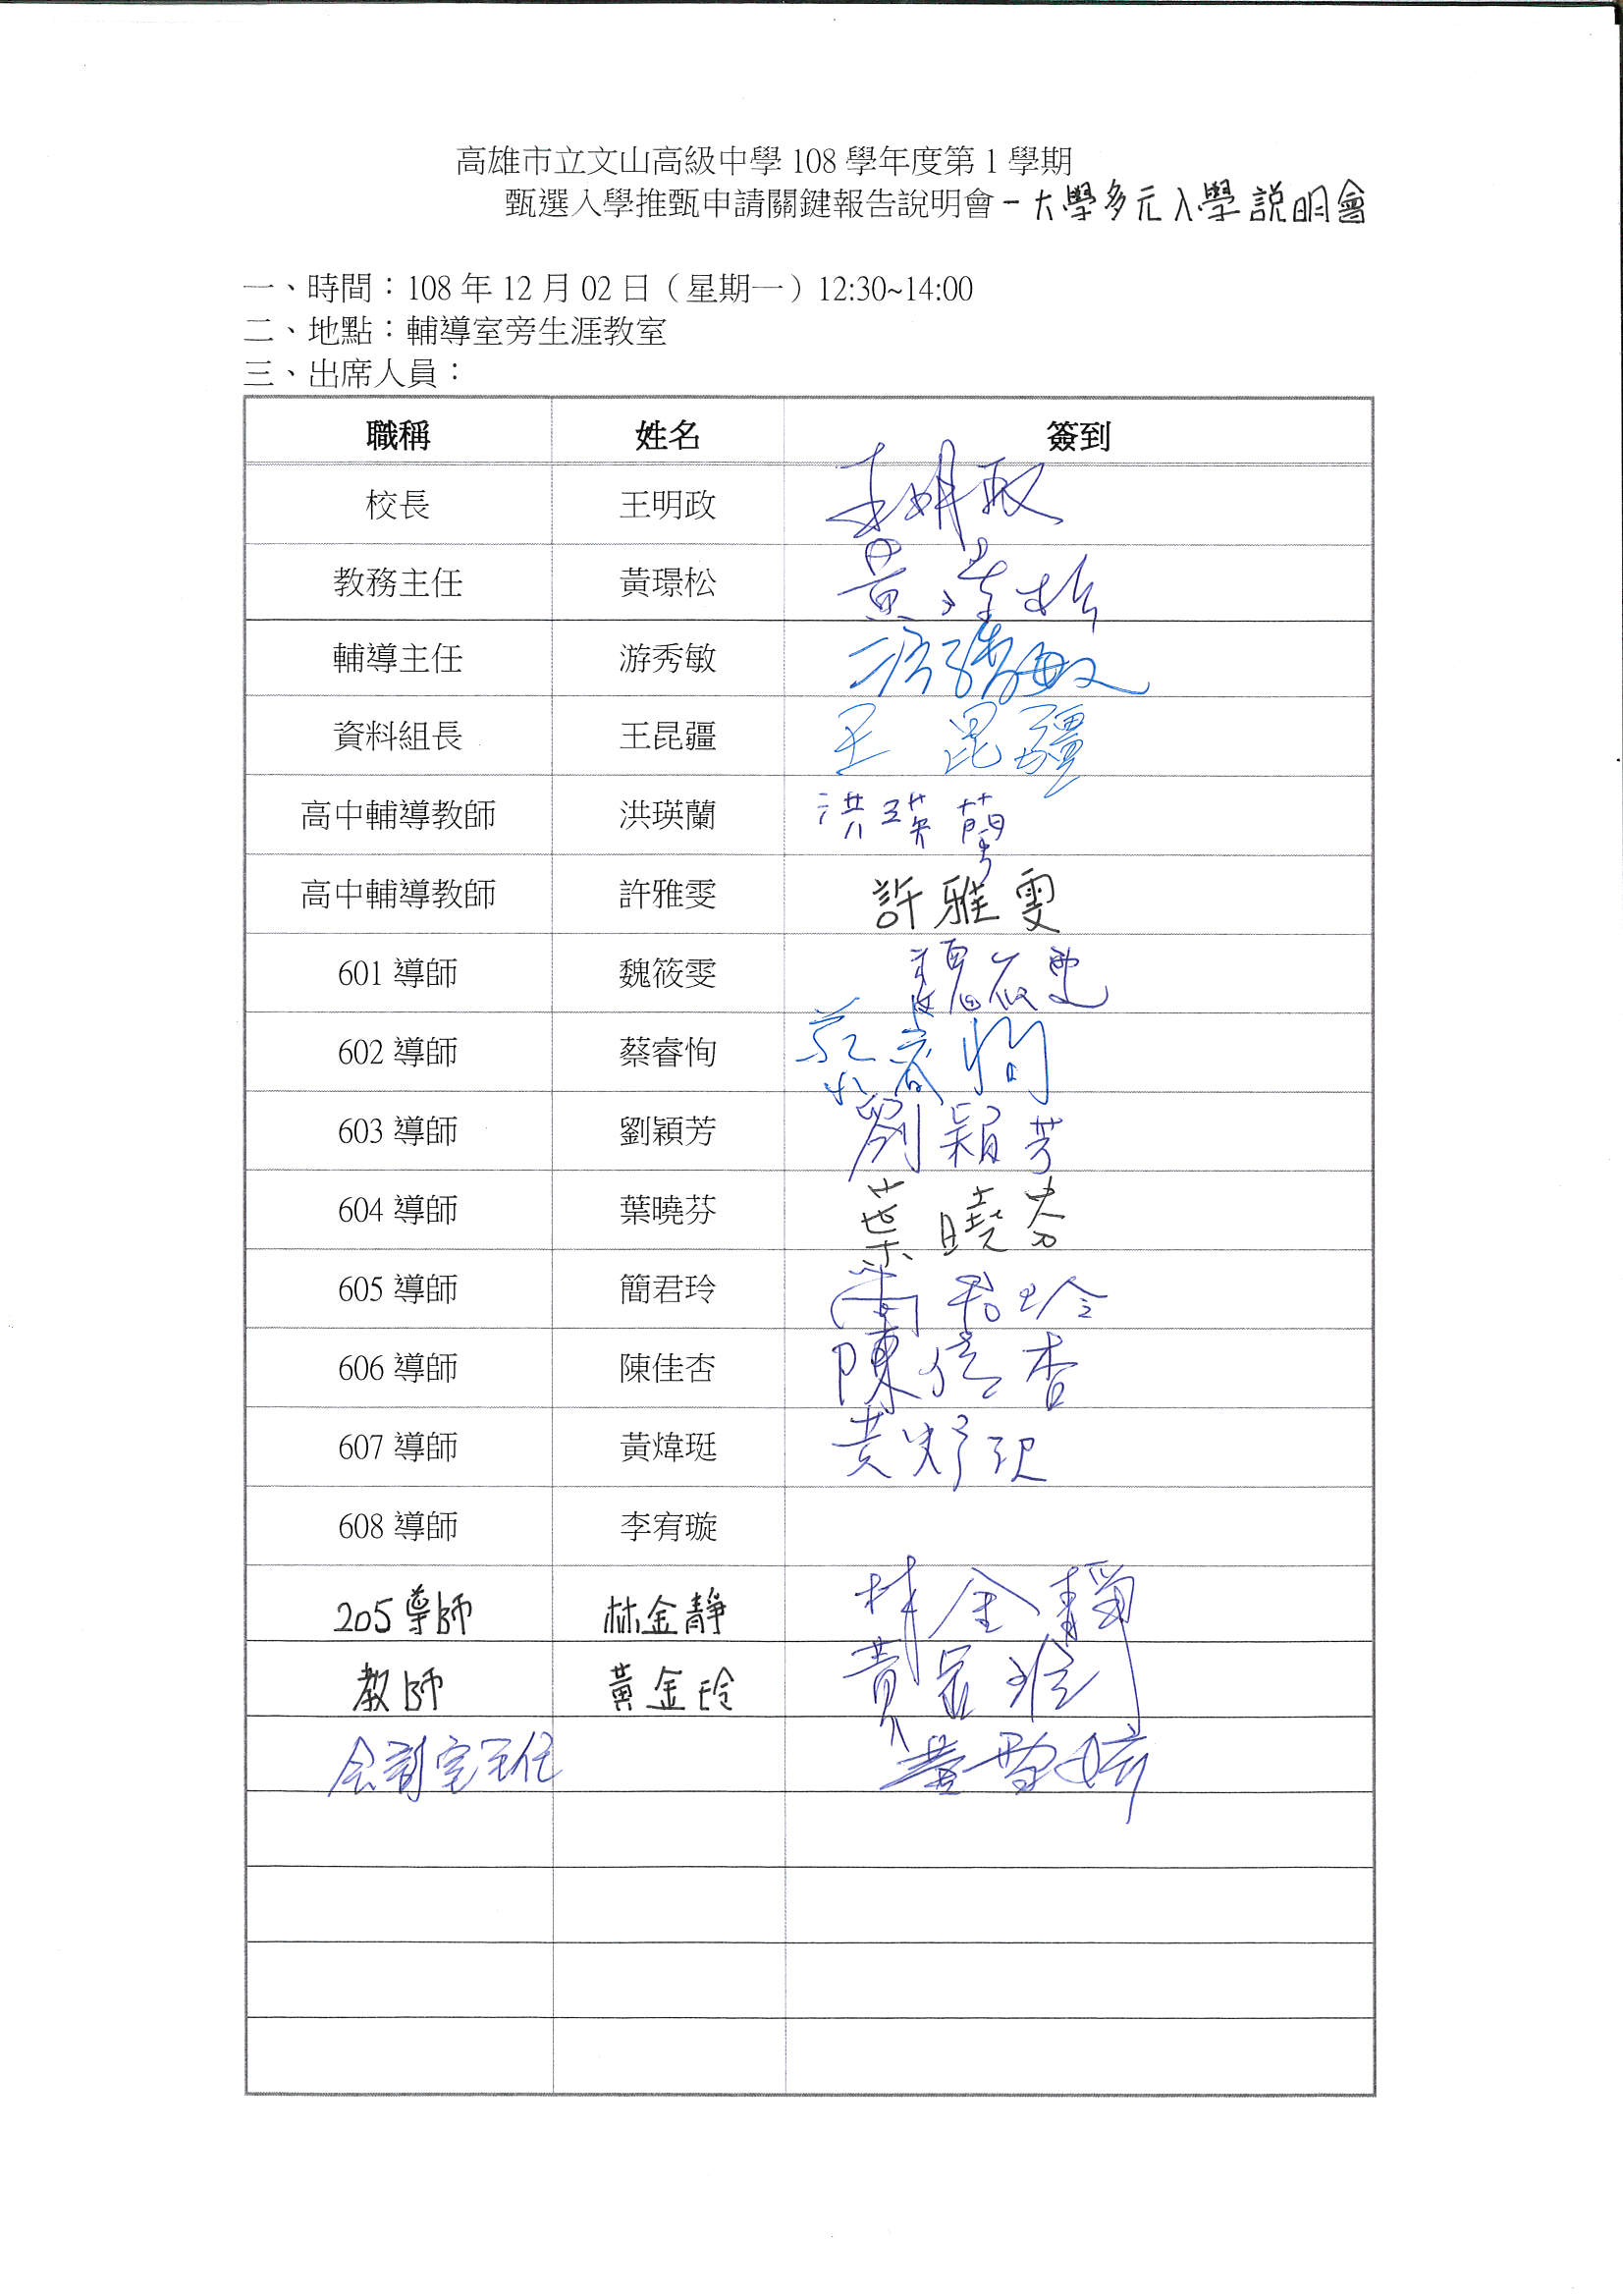 高雄市立文山高級中學 108 學年度第 1 學期
甄選入學推甄申請關鍵報告說明會－大學多元入學説明會
一、時間：108 年 12 月 02 日（星期一）12:30~14:00
二、地點：輔導室旁生涯教室
三、出席人員：
職稱 姓名 簽到
校長 王明政 王明政
教務主任 黃璟松 黃璟松
輔導主任 游秀敏 游秀敏
資料組長 王昆疆 王昆疆
高中輔導教師 洪瑛蘭 洪瑛蘭
高中輔導教師 許雅雯 許雅雯
601 導師 魏筱雯 魏筱雯
602 導師 蔡睿恂 蔡睿恂
603 導師 劉穎芳 劉穎芳
604 導師 葉曉芬 葉曉芬
605 導師 簡君玲 簡君玲
606 導師 陳佳杏 陳佳杏
607 導師 黃煒珽 黃煒珽
608 導師 李宥璇
205 導師 林金靜 林金靜
教師 黃金玲 黃金玲
会計室主任